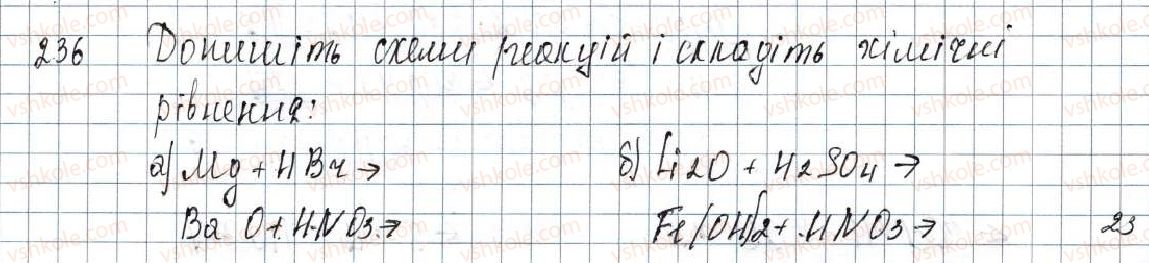 236 Допишіть схеми реакцій і складіть хімічні
рівнення:
а) Mg + HBr → б) Li2O + H2SO4 →
BaO + HNO3 → Fe(OH)2 + HNO3 → 23